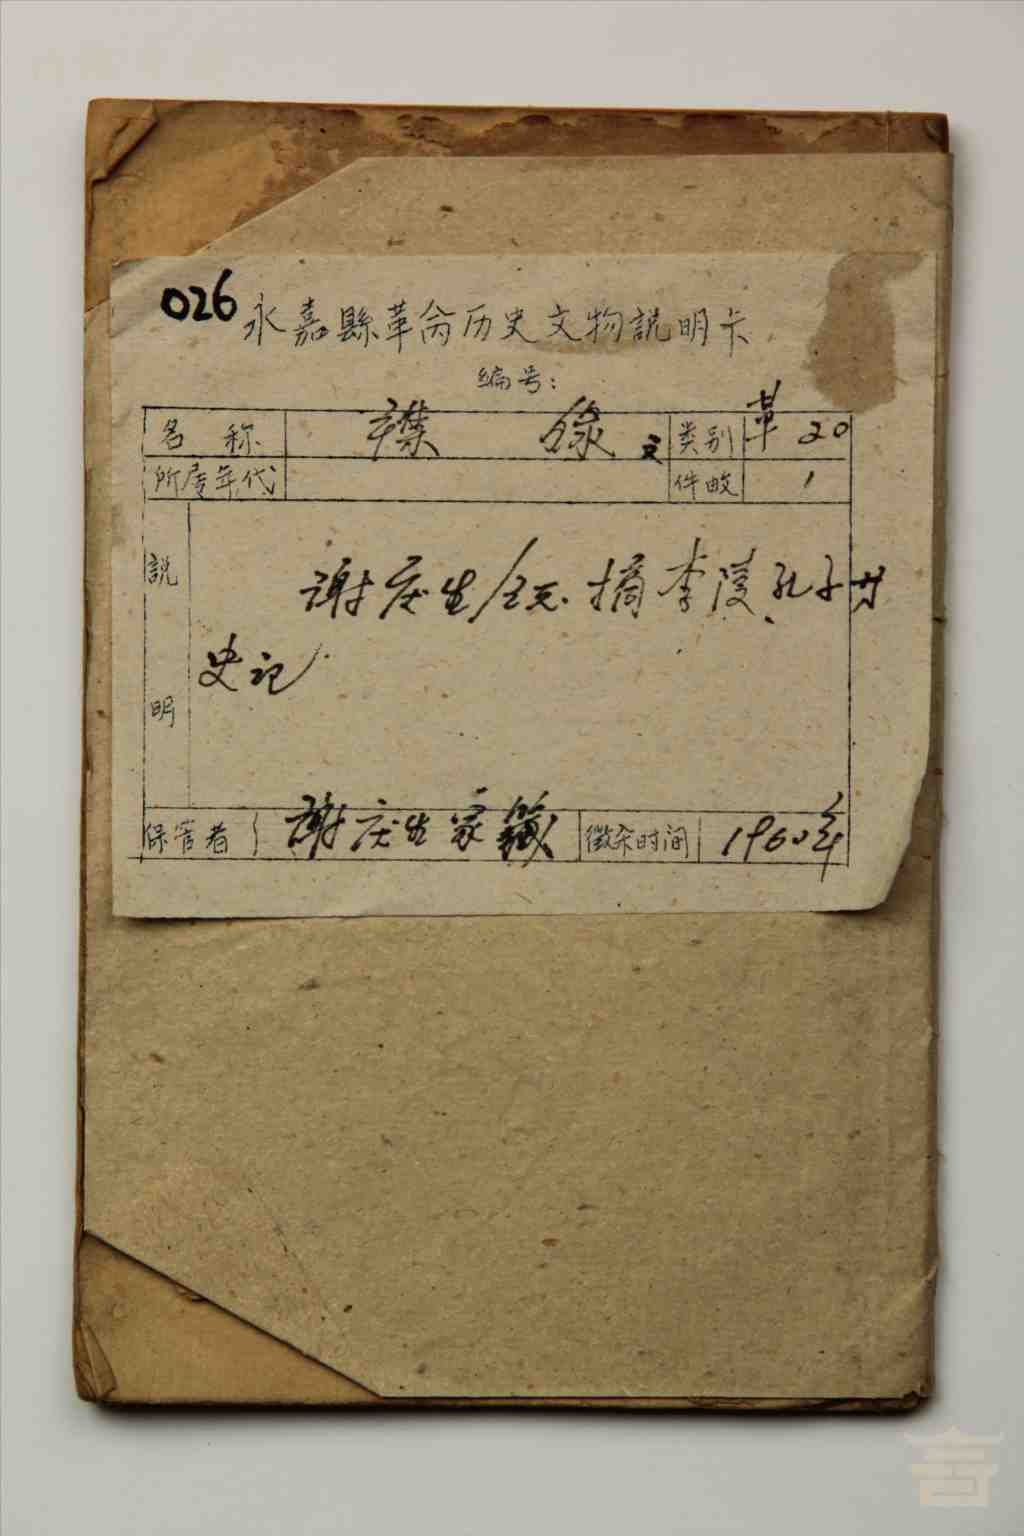 026
永嘉縣革命历史文物説明卡
编号：
名称 襍 錄 文 类别 革20
所属年代 件数 1
説明 谢庆生同志摘李陵、孔子廿
史记
保管者 謝庆生家藏 徵集时间 1960年